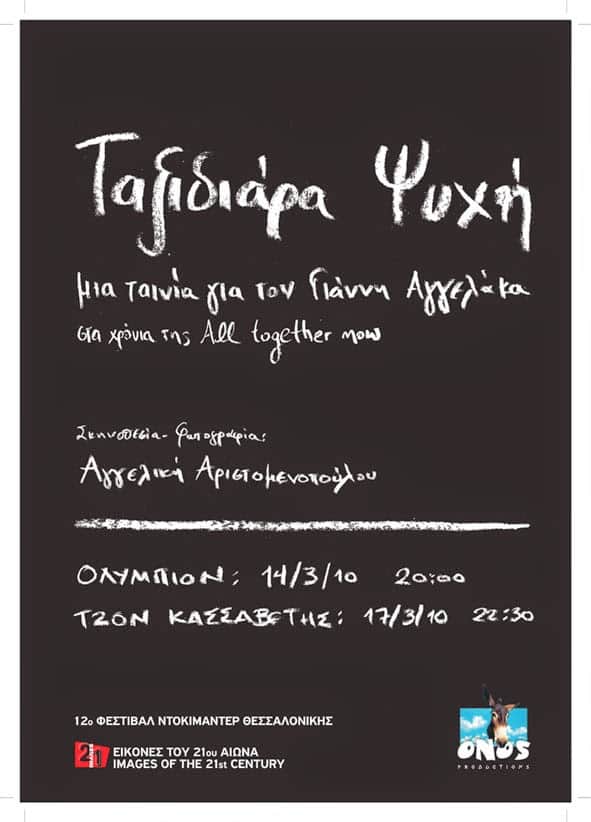 Ταξιδιάρα Ψυχή
μια ταινία για τον Γιάννη Αγγελάκα
στα χρόνια της All together now
Σκηνοθεσία - φωτογραφία:
Αγγελική Αριστομενοπούλου
ΟΛΥΜΠΙΟΝ: 14/3/10 20:00
ΤΖΟΝ ΚΑΣΣΑΒΕΤΗΣ: 17/3/10 22:30
12ο ΦΕΣΤΙΒΑΛ ΝΤΟΚΙΜΑΝΤΕΡ ΘΕΣΣΑΛΟΝΙΚΗΣ
21
ΕΙΚΟΝΕΣ ΤΟΥ 21ου ΑΙΩΝΑ
IMAGES OF THE 21st CENTURY
ONOS
PRODUCTIONS